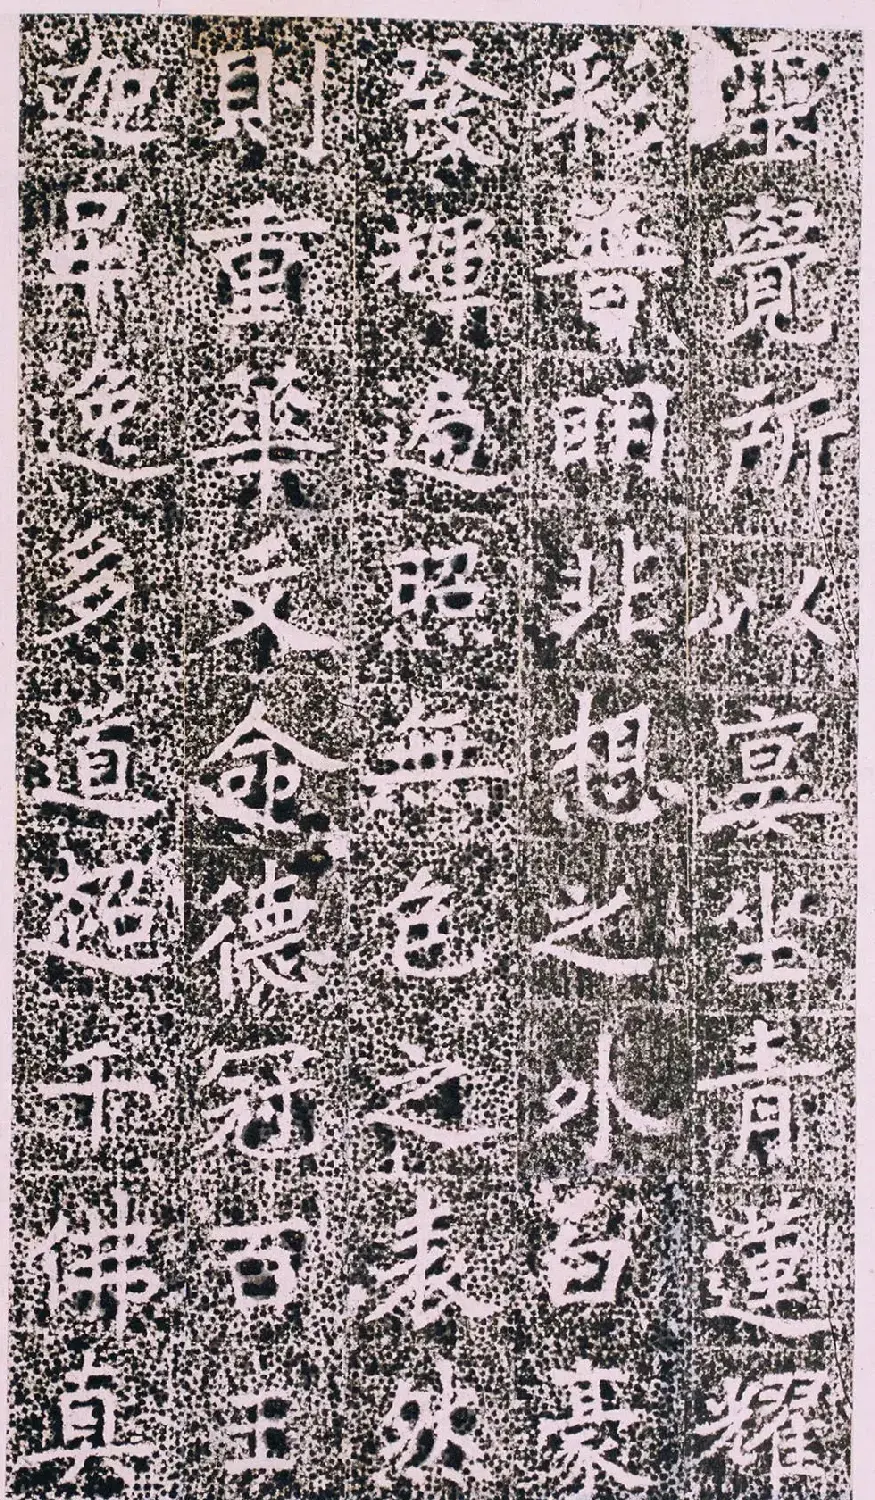 靈覺所以宴坐青蓮耀
彩普眀非想之外白豪
發輝遍照無色之表然
則重華文命德冠百王
迦牟逸多道超千佛真